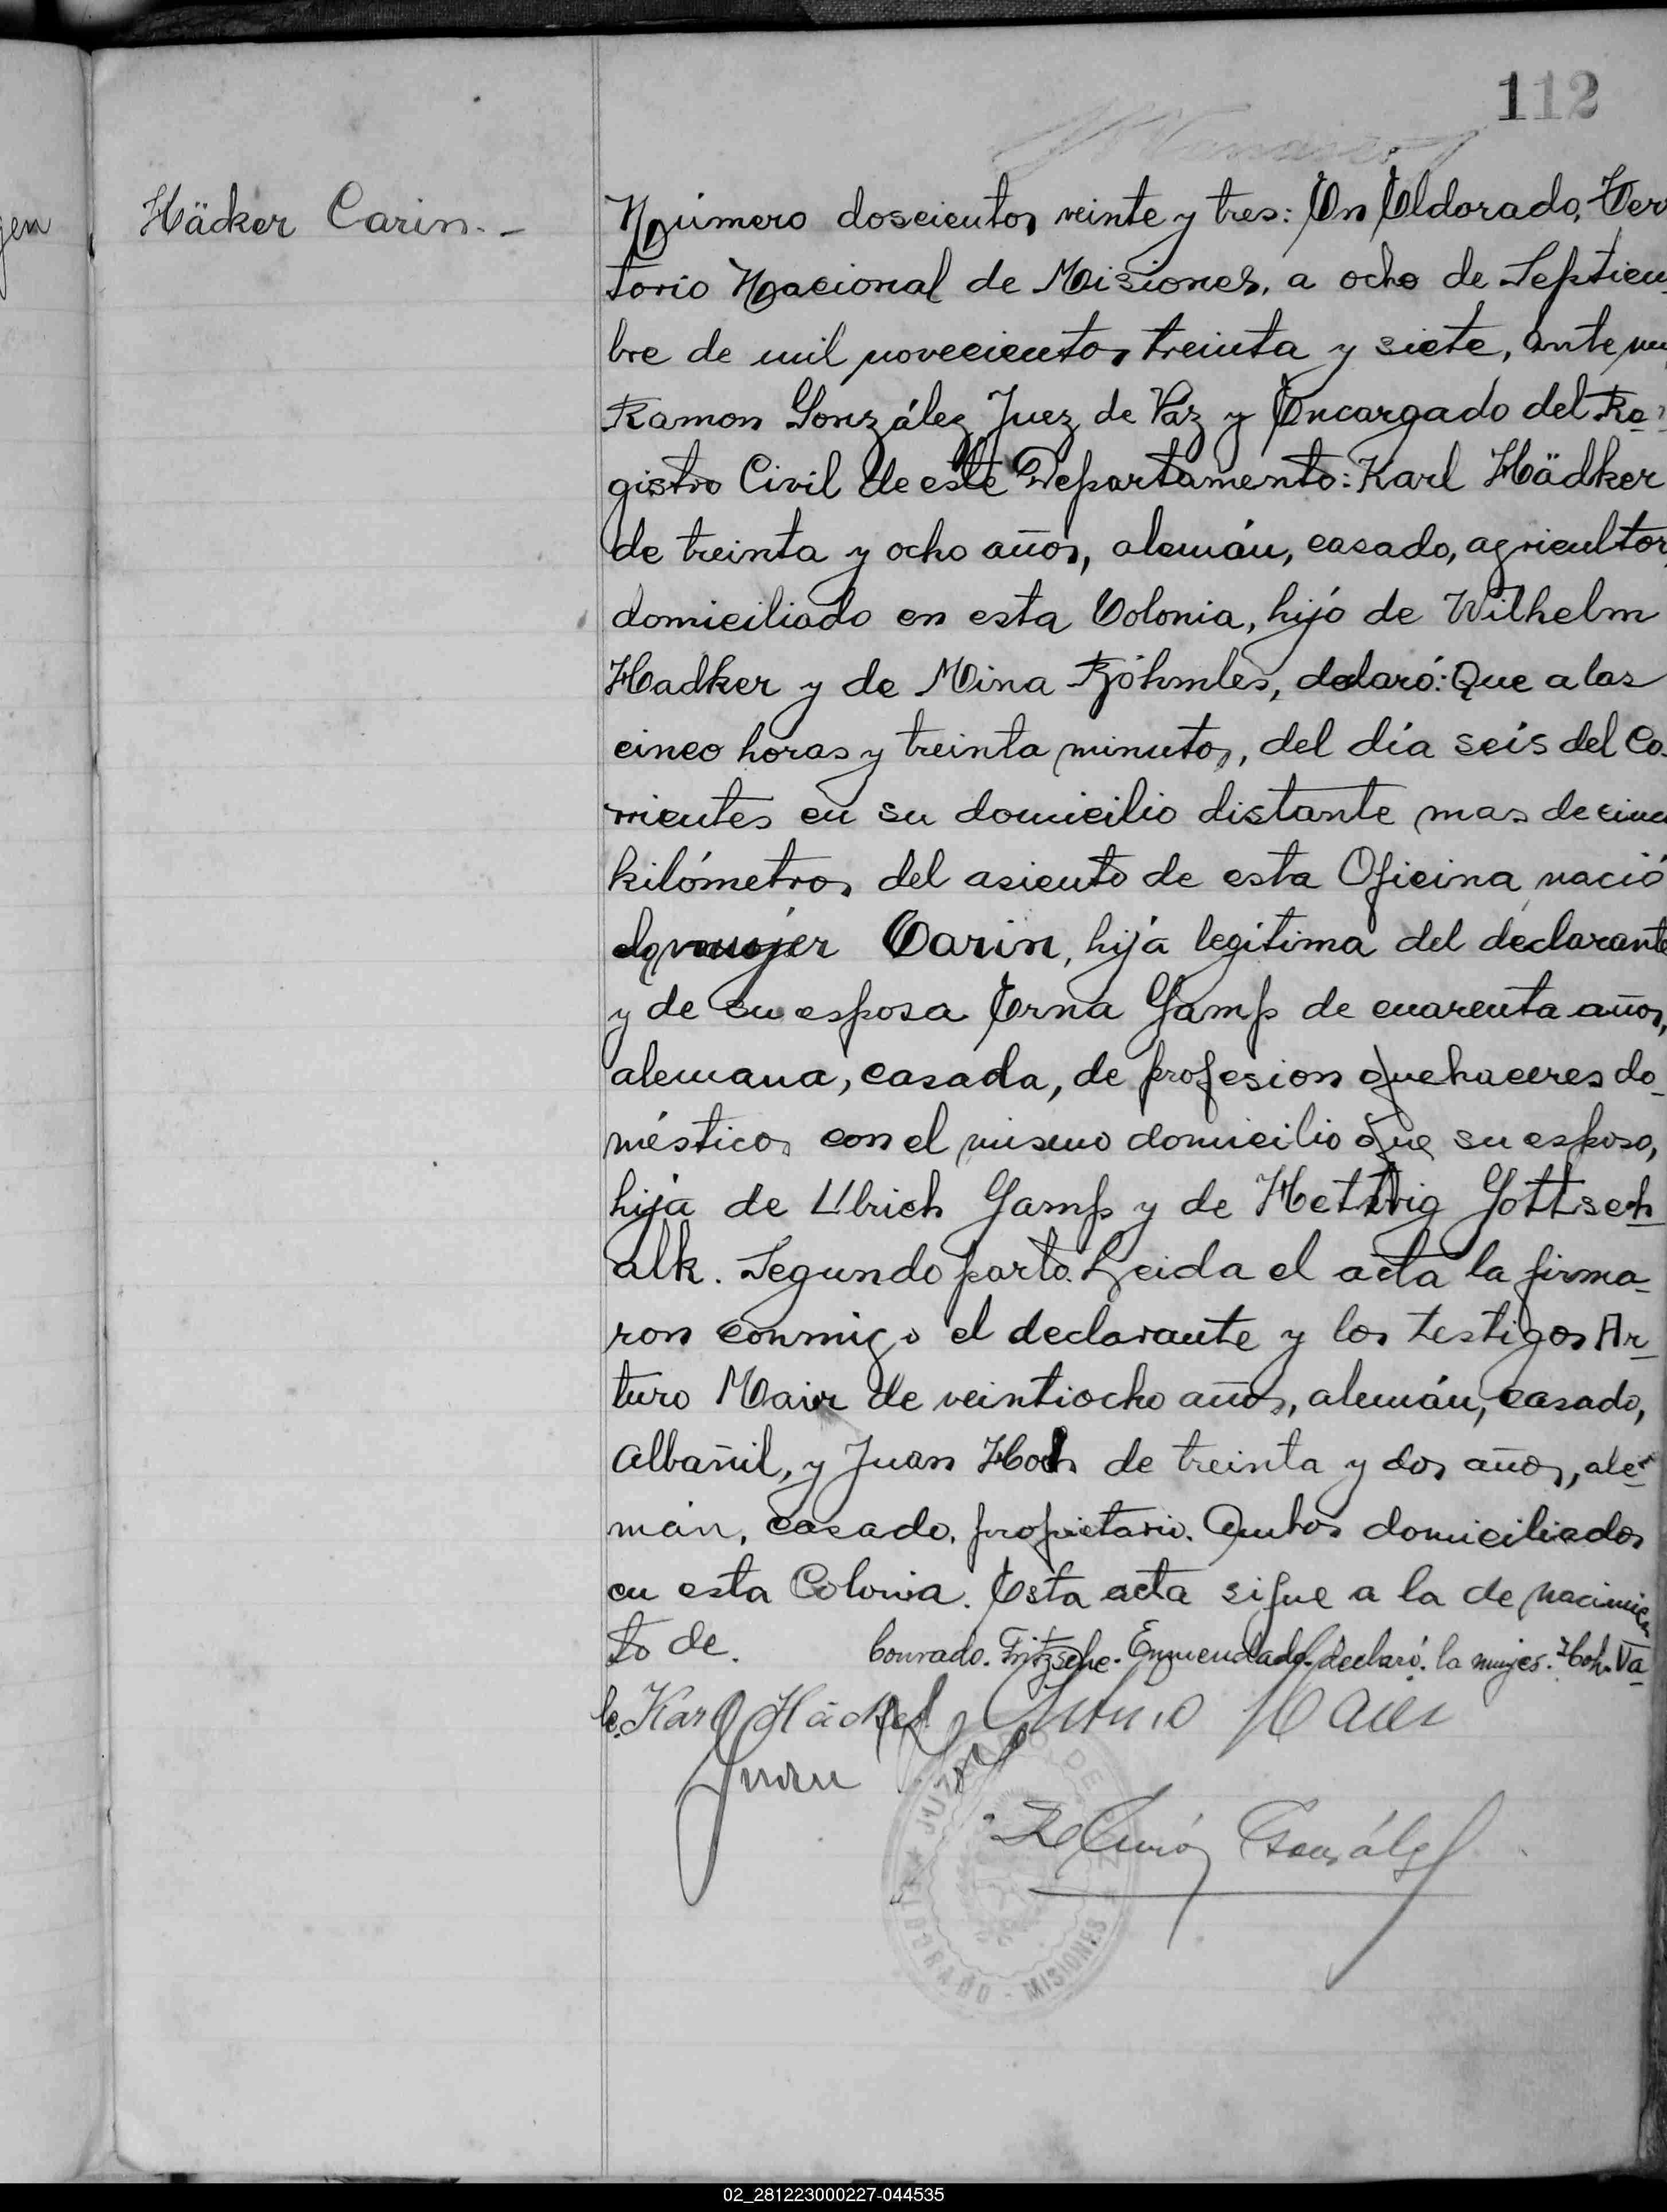 112
gen
Häcker Carin. -
Número doscientos veinte y tres: En Eldorado, Terr
torio Nacional de Misiones, a ocho de Septiem
bre de mil novecientos treinta y siete, ante mi
Ramon González Juez de Paz y Encargado del Re-
gistro Civil de este Departamento: Karl Hädker
de treinta y ocho años, alemán, casado, agricultor,
domiciliado en esta Colonia, hijo de Wilhelm
Hadker y de Mina, declaró: Que a las
cinco horas y treinta minutos, del día seis del Co-
rrientes en su domicilio distante mas de cinco
kilómetros del asiento de esta Oficina, nació
la mujer Carin, hija legítima del declarante
y de su esposa Erna Gamp de cuarenta años,
alemana, casada, de profesion quehaceres do-
mésticos con el mismo domicilio que su esposo,
hija de Ulrich Gamp y de Hettwig Gottsch
alk. Segundo parto. Leida el acta la firma-
ron conmigo el declarante y los testigos Ar-
turo Mair de veintiocho años, alemán, casado,
albañil, y Juan Hoh de treinta y dos años, ale-
mán, casado, propietario. Ambos domiciliados
en esta Colonia. Esta acta sigue a la de nacimien
to de. Conrado. Fritzsche. Enmendado. declaró. la mujer. Hoh. Va-
le. Karl Häcker Arturo Maier
Juan
Ramón González
JUZGADO DE PAZ
ELDORADO - MISIONES
02_281223000227-044535